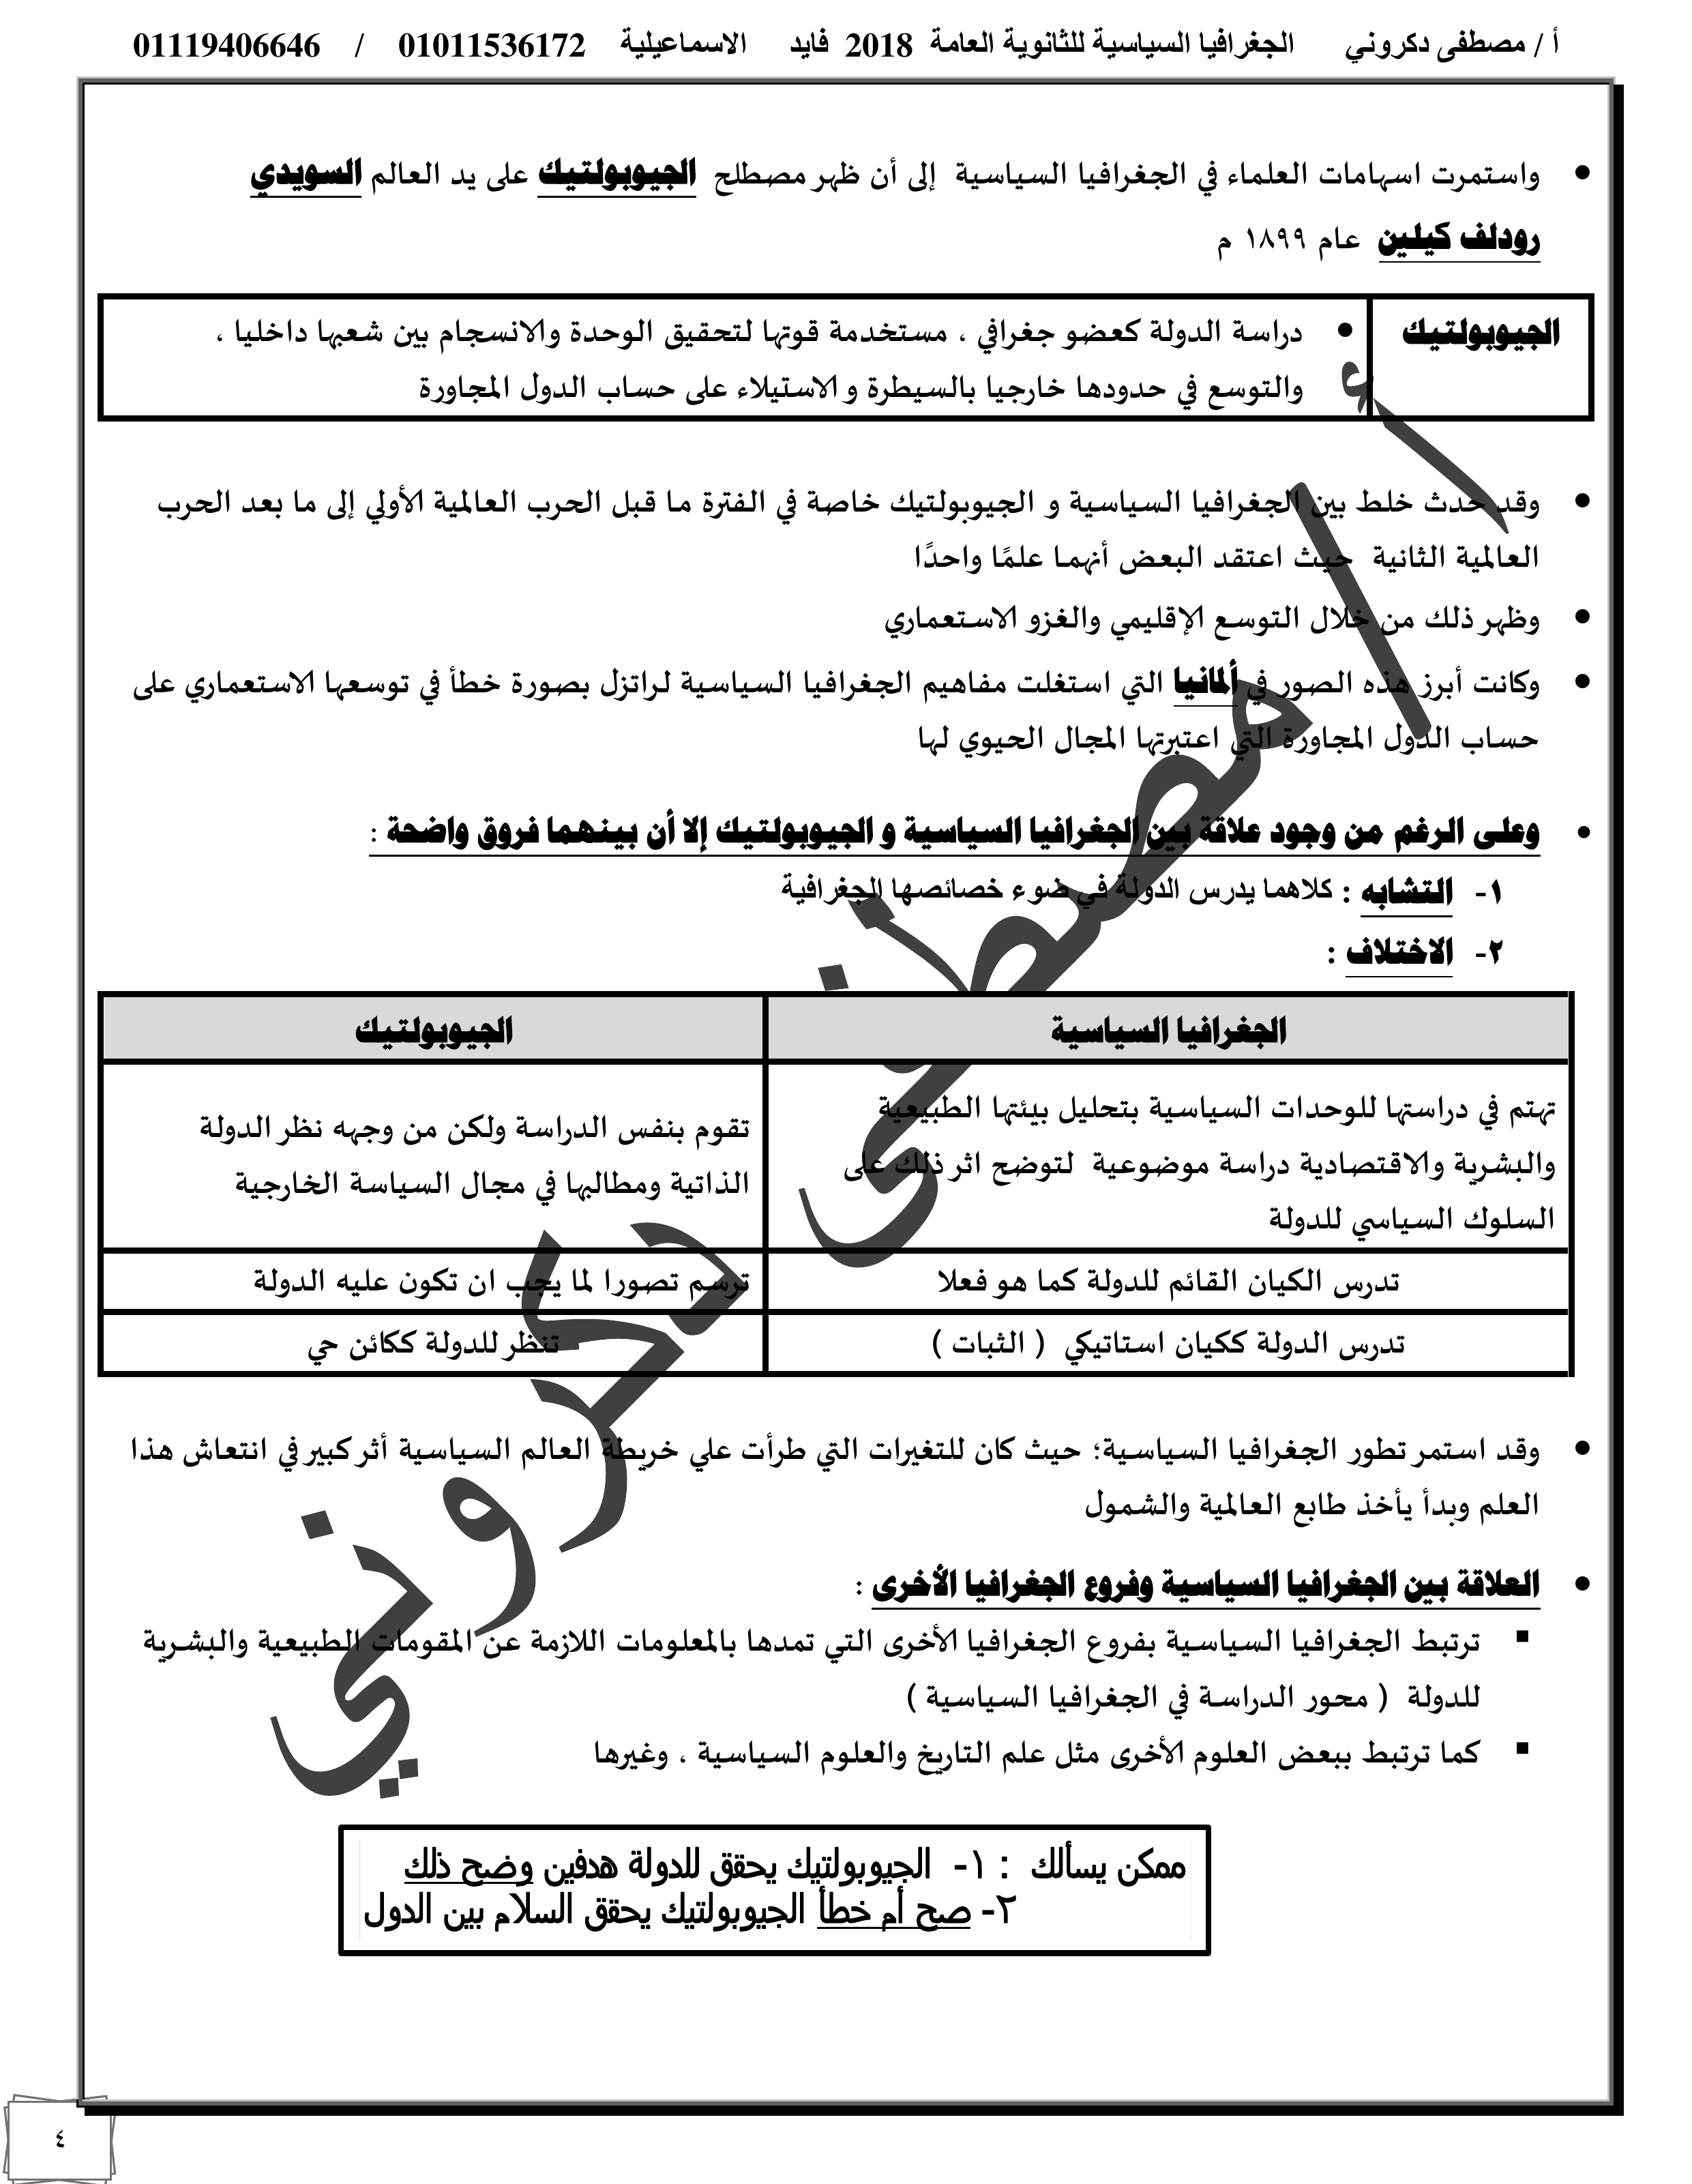 أ / مصطفى دكروني الجغرافيا السياسية للثانوية العامة 2018 فايد الاسماعيلية 01011536172 / 01119406646
• واستمرت اسهامات العلماء في الجغرافيا السياسية إلى أن ظهر مصطلح الجيوبولتيك على يد العالم السويدي
رودلف كيلين عام ١٨٩٩ م
الجيوبولتيك
• دراسة الدولة كعضو جغرافي ، مستخدمة قوتها لتحقيق الوحدة والانسجام بين شعبها داخليا ،
والتوسع في حدودها خارجيا بالسيطرة و الاستيلاء على حساب الدول المجاورة
• وقد حدث خلط بين الجغرافيا السياسية و الجيوبولتيك خاصة في الفترة ما قبل الحرب العالمية الأولي إلى ما بعد الحرب
العالمية الثانية حيث اعتقد البعض أنهما علمًا واحدًا
• وظهر ذلك من خلال التوسع الإقليمي والغزو الاستعماري
• وكانت أبرز هذه الصور في ألمانيا التي استغلت مفاهيم الجغرافيا السياسية لراتزل بصورة خطأ في توسعها الاستعماري على
حساب الدول المجاورة التي اعتبرتها المجال الحيوي لها
• وعلى الرغم من وجود علاقة بين الجغرافيا السياسية و الجيوبولتيك إلا أن بينهما فروق واضحة :
١- التشابه : كلاهما يدرس الدولة في ضوء خصائصها الجغرافية
٢- الاختلاف :
الجغرافيا السياسية
الجيوبولتيك
تهتم في دراستها للوحدات السياسية بتحليل بيئتها الطبيعية
والبشرية والاقتصادية دراسة موضوعية لتوضح اثر ذلك على
السلوك السياسي للدولة
تقوم بنفس الدراسة ولكن من وجهه نظر الدولة
الذاتية ومطالبها في مجال السياسة الخارجية
تدرس الكيان القائم للدولة كما هو فعلا
ترسم تصورا لما يجب ان تكون عليه الدولة
تدرس الدولة ككيان استاتيكي ( الثبات )
تنظر للدولة ككائن حي
• وقد استمر تطور الجغرافيا السياسية؛ حيث كان للتغيرات التي طرأت علي خريطة العالم السياسية أثر كبير في انتعاش هذا
العلم وبدأ يأخذ طابع العالمية والشمول
• العلاقة بين الجغرافيا السياسية وفروع الجغرافيا الأخرى :
▪ ترتبط الجغرافيا السياسية بفروع الجغرافيا الأخرى التي تمدها بالمعلومات اللازمة عن المقومات الطبيعية والبشرية
للدولة ( محور الدراسة في الجغرافيا السياسية )
▪ كما ترتبط ببعض العلوم الأخرى مثل علم التاريخ والعلوم السياسية ، وغيرها
ممكن يسألك : ١- الجيوبولتيك يحقق للدولة هدفين وضح ذلك
٢- صح أم خطأ الجيوبولتيك يحقق السلام بين الدول
٤
أ / مصطفى دكروني